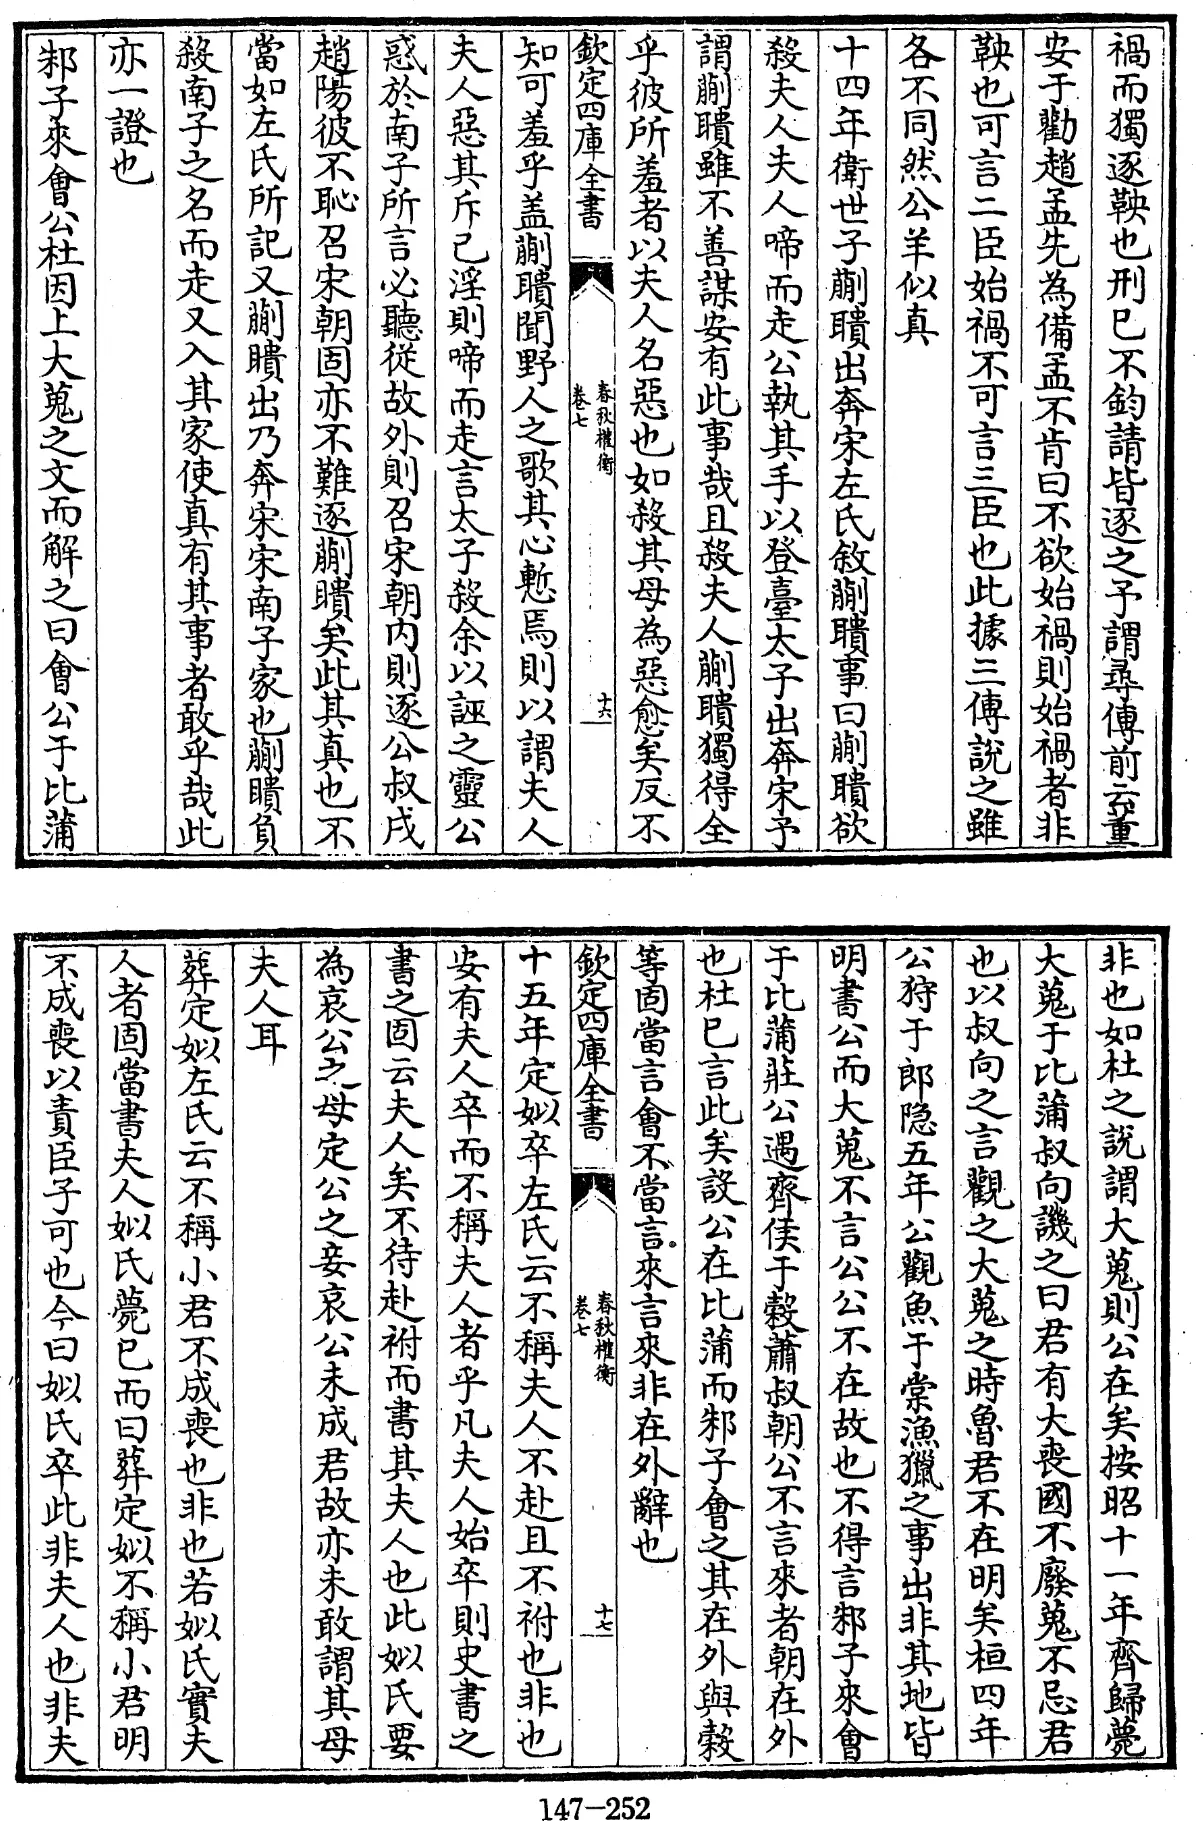 禍而獨逐鞅也刑已不鈞請皆逐之予謂尋傳前云董
安于勸趙孟先為備孟不肯曰不欲始禍則始禍者非
鞅也可言二臣始禍不可言三臣也此據三傳説之雖
各不同然公羊似真
十四年衛世子蒯聵出奔宋左氏敘蒯聵事曰蒯聵欲
殺夫人夫人啼而走公執其手以登臺太子出奔宋予
謂蒯聵雖不善謀安有此事哉且殺夫人蒯聵獨得全
乎彼所羞者以夫人名惡也如殺其母為惡愈矣反不
欽定四庫全書
春秋權衡
卷七
十六
知可羞乎盖蒯聵聞野人之歌其心慙焉則以謂夫人
夫人惡其斥己淫則啼而走言太子殺余以誣之靈公
惑於南子所言必聽從故外則召宋朝内則逐公叔戌
趙陽彼不恥召宋朝固亦不難逐蒯聵矣此其真也不
當如左氏所記又蒯聵出乃奔宋宋南子家也蒯聵負
殺南子之名而走又入其家使真有其事者敢乎哉此
亦一證也
邾子來會公杜因上大蒐之文而解之曰會公于比蒲
非也如杜之説謂大蒐則公在矣按昭十一年齊歸薨
大蒐于比蒲叔向譏之曰君有大喪國不廢蒐不忌君
也以叔向之言觀之大蒐之時魯君不在明矣桓四年
公狩于郎隐五年公觀魚于棠漁獵之事出非其地皆
明書公而大蒐不言公公不在故也不得言邾子來會
于比蒲莊公遇齊侯于榖蕭叔朝公不言來者朝在外
也杜已言此矣設公在比蒲而邾子會之其在外與榖
等固當言會不當言來言來非在外辭也
欽定四庫全書
春秋權衡
卷七
十七
十五年定姒卒左氏云不稱夫人不赴且不祔也非也
安有夫人卒而不稱夫人者乎凡夫人始卒則史書之
書之固云夫人矣不待赴祔而書其夫人也此姒氏要
為哀公之母定公之妾哀公未成君故亦未敢謂其母
夫人耳
葬定姒左氏云不稱小君不成喪也非也若姒氏實夫
人者固當書夫人姒氏薨已而曰葬定姒不稱小君明
不成喪以責臣子可也今曰姒氏卒此非夫人也非夫
147-252